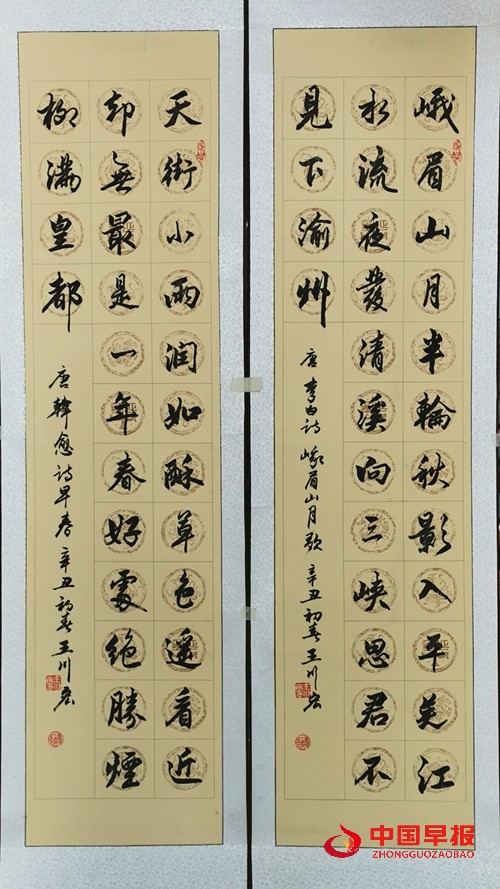 峨眉山月半輪秋影入平羌江
水流夜發清溪向三峽思君不
見下渝州
唐李白诗峨眉山月歌辛丑初春王川宏
天街小雨润如酥草色遥看近
却無最是一年春好處绝勝煙
柳滿皇都
唐韓愈诗早春辛丑初春王川宏
中国早报
ZHONGGUOZAOBAO